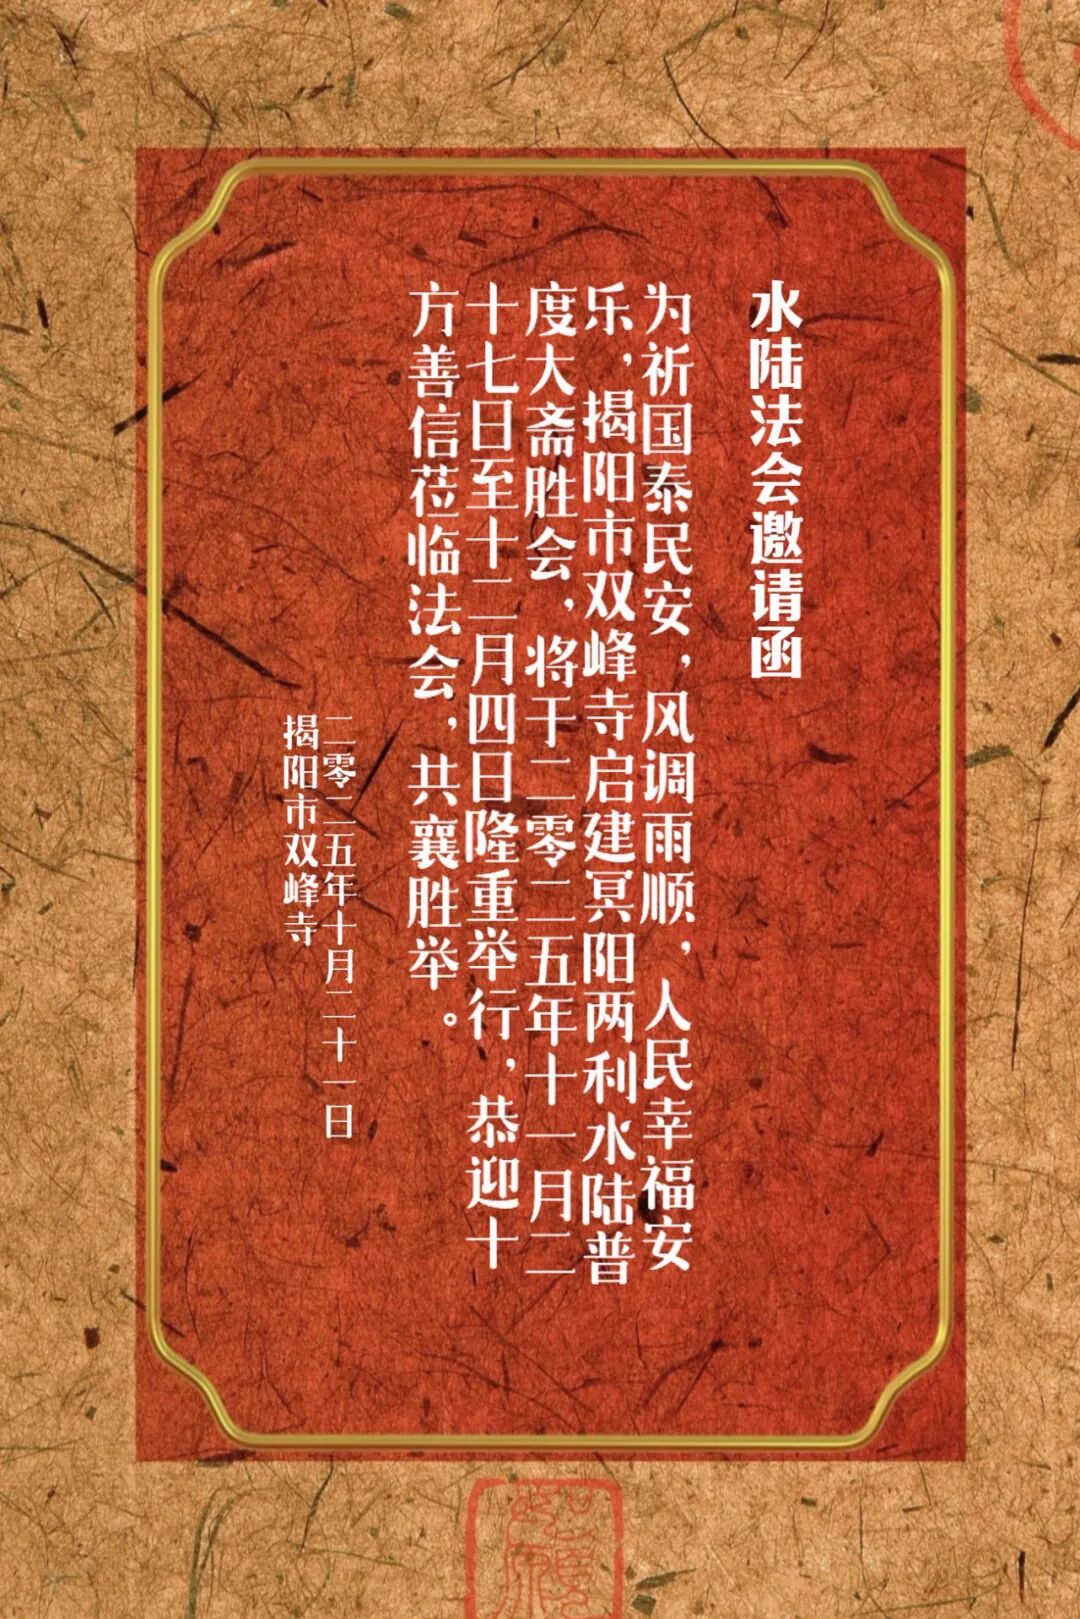 水陆法会邀请函
为祈国泰民安，风调雨顺，人民幸福安
乐，揭阳市双峰寺启建冥阳两利水陆普
度大斋胜会，将于二零二五年十一月二
十七日至十二月四日隆重举行，恭迎十
方善信莅临法会，共襄胜举。
二零二五年十月二十一日
揭阳市双峰寺